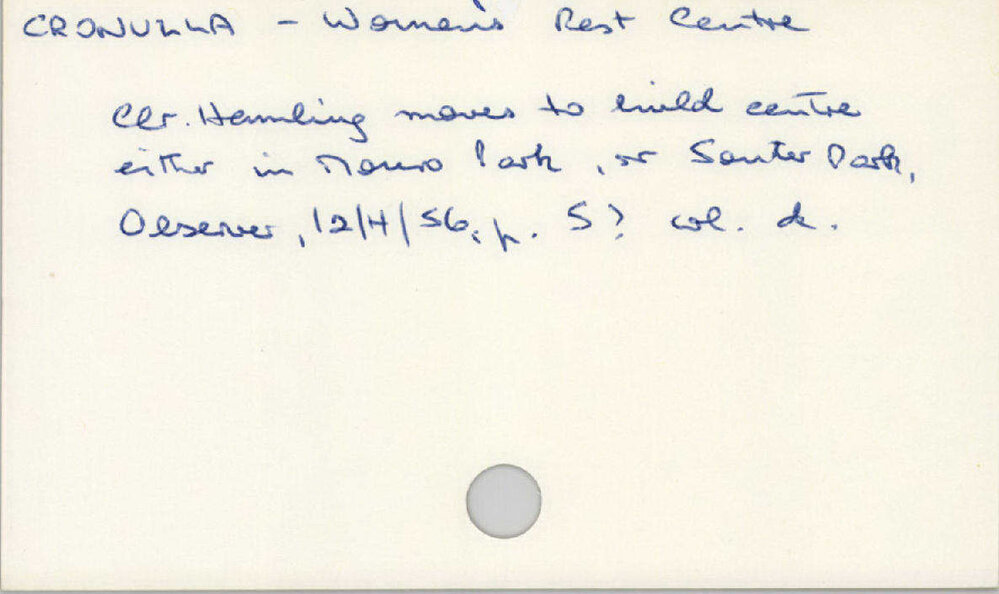 CRONULLA - Women's Rest Centre
Clr. Hamling moves to build centre
either in Monro Park, or Souter Park,
Observer, 12/4/56, p. 5? col. d.